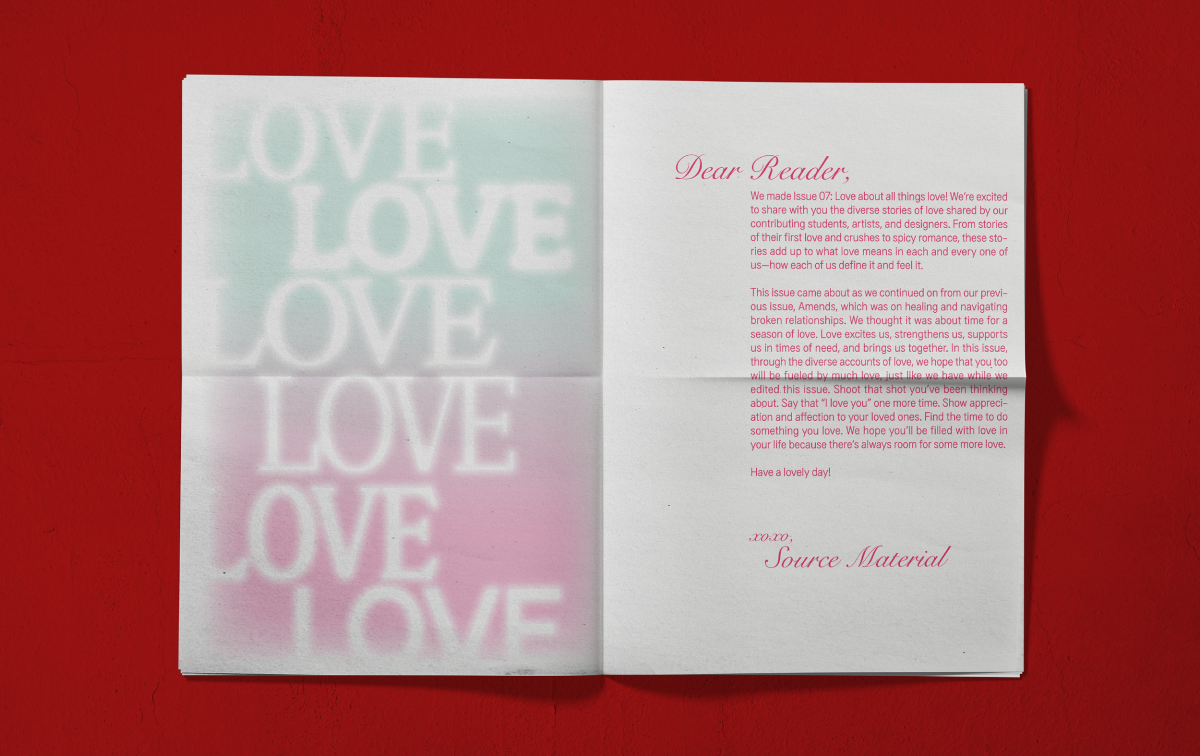 LOVE
LOVE
LOVE
LOVE
LOVE
LOVE
Dear Reader,
We made Issue 07: Love about all things love! We're excited
to share with you the diverse stories of love shared by our
contributing students, artists, and designers. From stories
of their first love and crushes to spicy romance, these sto-
ries add up to what love means in each and every one of
us—how each of us define it and feel it.
This issue came about as we continued on from our previ-
ous issue, Amends, which was on healing and navigating
broken relationships. We thought it was about time for a
season of love. Love excites us, strengthens us, supports
us in times of need, and brings us together. In this issue,
through the diverse accounts of love, we hope that you too
will be fueled by much love, just like we have while we
edited this issue. Shoot that shot you've been thinking
about. Say that "I love you" one more time. Show appreci-
ation and affection to your loved ones. Find the time to do
something you love. We hope you'll be filled with love in
your life because there's always room for some more love.
Have a lovely day!
xoxo,
Source Material